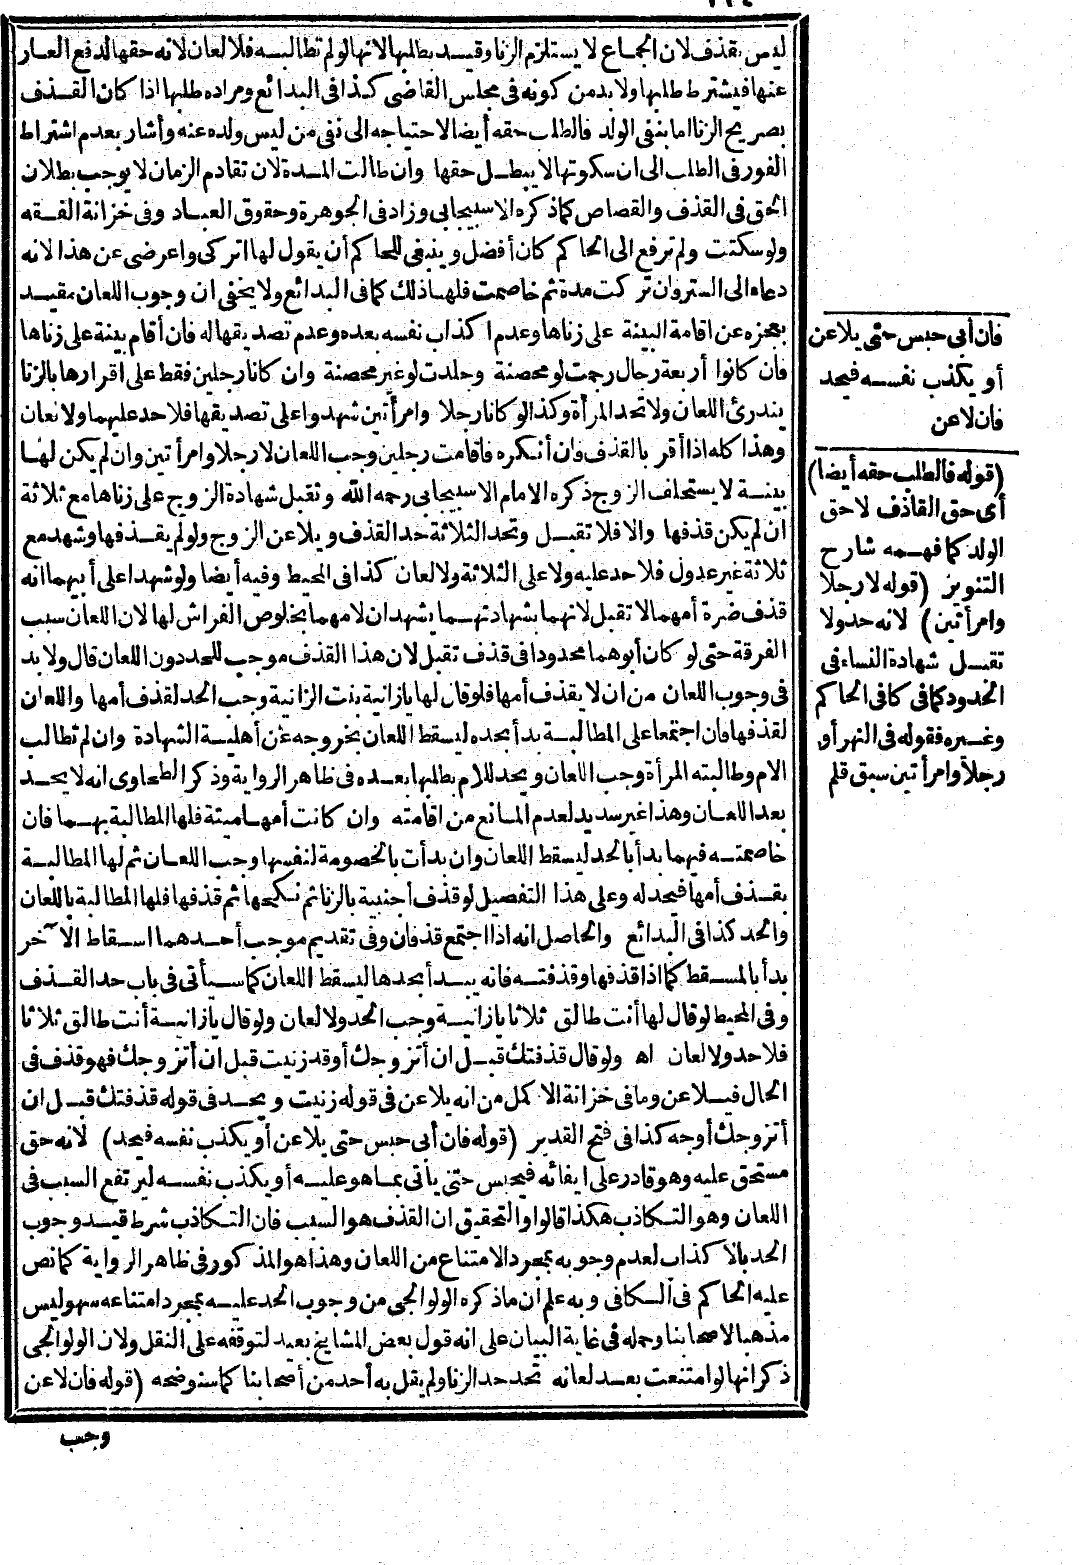 ليس بقذف لان الجماع لا يستلزم الزنا وقيد بطلبها لانها لو لم تطالبه فلا لعان لانه حقها لدفع العار
عنها فيشترط طلبها ولا بد من كونه فى مجلس القاضى كذا فى البدائع ومراده طلبها اذا كان القذف
بصريح الزنا اما بنفى الولد فالطلب حقه أيضا لاحتياجه الى نفى من ليس ولده عنه وأشار بعدم اشتراط
الفور فى الطلب الى ان سكوتها لا يبطل حقها وان طالت المدة لان تقادم الزمان لا يوجب بطلان
الحق فى القذف والقصاص كما ذكره الاسبيجابى وزاد فى الجوهرة وحقوق العباد وفى خزانة الفقه
ولو سكتت ولم ترفع الى الحاكم كان أفضل وينبغى للحاكم أن يقول لها اتركى واعرضى عن هذا لانه
دعاء الى الستر وان تركت مدة ثم خاصمت فلها ذلك كما فى البدائع ولا يخفى ان وجوب اللعان مقيد
بعجزه عن اقامة البينة على زناها وعدم اكذاب نفسه بعده وعدم تصديقها له فان أقام بينة على زناها
فان كانوا أربعة رجال رجمت لو محصنة وجلدت لو غير محصنة وان كانا رجلين فقط على اقرارها بالزنا
يندرئ اللعان ولا تحد المرأة وكذا لو كانا رجلا وامرأتين شهدوا على تصديقها فلا حد عليهما ولا لعان
وهذا كله اذا أقر بالقذف فان أنكره فأقامت رجلين وجب اللعان لا رجلا وامرأتين وان لم يكن لها
بينة لا يستحلف الزوج ذكره الامام الاسبيجابى رحمه الله وتقبل شهادة الزوج على زناها مع ثلاثة
ان لم يكن قذفها والا فلا تقبل وتحد الثلاثة حد القذف ويلاعن الزوج ولو لم يقذفها وشهد مع
ثلاثة غير عدول فلا حد عليه ولا على الثلاثة ولا لعان كذا فى المحيط وفيه أيضا ولو شهدا على أبيهما انه
قذف ضرة أمهما لا تقبل لانهما بشهادتهما يشهدان لامهما بخلوص الفراش لها لان اللعان سبب
الفرقة حتى لو كان أبوهما محدودا فى قذف تقبل لان هذا القذف موجب للحد دون اللعان قال ولا بد
فى وجوب اللعان من ان لا يقذف أمها فلو قال لها يا زانية بنت الزانية وجب الحد لقذف أمها واللعان
لقذفها فان اجتمعا على المطالبة بدأ بحده ليسقط اللعان بخروجه عن أهلية الشهادة وان لم تطالب
الام وطالبته المرأة وجب اللعان ويحد للام بطلبها بعده فى ظاهر الرواية وذكر الطحاوى انه لا يحد
بعد اللعان وهذا غير سديد لعدم المانع من اقامته وان كانت أمها ميتة فلها المطالبة بهما فان
خاصمته فيهما بدأ بالحد ليسقط اللعان وان بدأت بالخصومة لنفسها وجب اللعان ثم لها المطالبة
بقذف أمها فيحد له وعلى هذا التفصيل لو قذف أجنبية بالزنا ثم نكحها ثم قذفها فلها المطالبة باللعان
والحد كذا فى البدائع والحاصل انه اذا اجتمع قذفان وفى تقديم موجب أحدهما اسقاط الآخر
بدأ بالمسقط كما اذا قذفها وقذفته فانه يبدأ بحدها ليسقط اللعان كما سيأتى فى باب حد القذف
وفى المحيط لو قال لها أنت طالق ثلاثا يا زانية وجب الحد ولا لعان ولو قال يا زانية أنت طالق ثلاثا
فلا حد ولا لعان اه ولو قال قذفتك قبل ان أتزوجك أو قد زنيت قبل ان أتزوجك فهو قذف فى
الحال فيلاعن وما فى خزانة الاكمل من انه يلاعن فى قوله زنيت ويحد فى قوله قذفتك قبل ان
أتزوجك أوجه كذا فى فتح القدير (قوله فان أبى حبس حتى يلاعن أو يكذب نفسه فيحد) لانه حق
مستحق عليه وهو قادر على ايفائه فيحبس حتى يأتى بما هو عليه أو يكذب نفسه ليرتفع السبب فى
اللعان وهو التكاذب هكذا قالوا والتحقيق ان القذف هو السبب فان التكاذب شرط قيد وجوب
الحد بالاكذاب لعدم وجوبه بمجرد الامتناع من اللعان وهذا هو المذكور فى ظاهر الرواية كما نص
عليه الحاكم فى الكافى وبه علم ان ما ذكره الولوالجى من وجوب الحد عليه بمجرد امتناعه سهو ليس
مذهبا لاصحابنا وحمله فى غاية البيان على انه قول بعض المشايخ بعيد لتوقفه على النقل ولان الولوالجى
ذكر انها لو امتنعت بعد لعانه تحد حد الزنا ولم يقل به أحد من أصحابنا كما سنوضحه (قوله فان لاعن
وجب
فان أبى حبس حتى يلاعن
أو يكذب نفسه فيحد
فان لاعن
(قوله فالطلب حقه أيضا)
أى حق القاذف لا حق
الولد كما فهمه شارح
التنوير (قوله لا رجلا
وامرأتين) لانه حد ولا
تقبل شهادة النساء فى
الحدود كما فى كافى الحاكم
وغيره فقوله فى النهر أو
رجلا وامرأتين سبق قلم